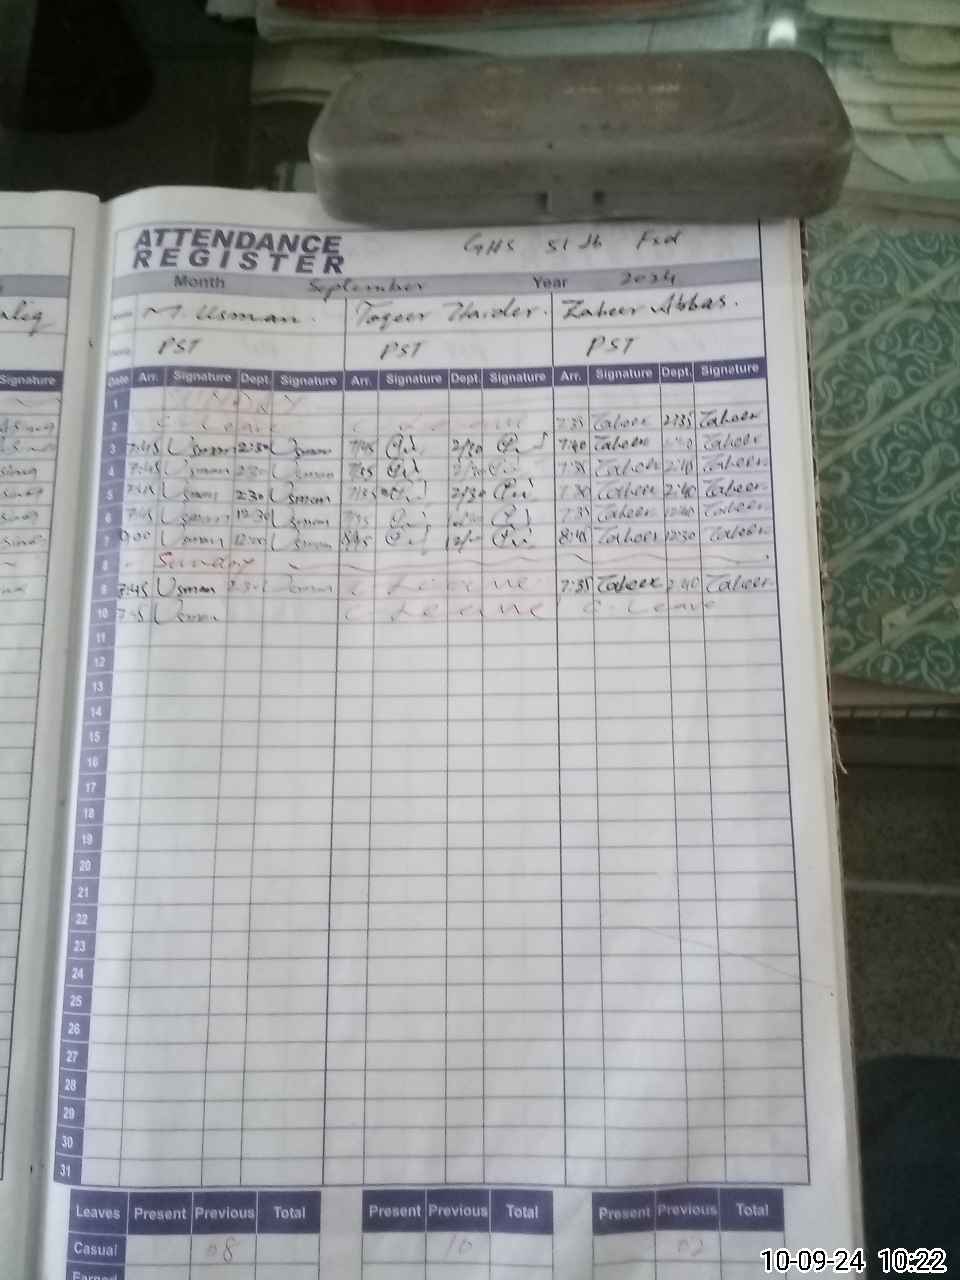 ATTENDANCE
REGISTER
GHS 51 Jb Fsd
Month September Year 2024
M. Usman. Toqeer Haider. Zaheer Abbas.
PST PST PST
Signature Date Arr. Signature Dept Signature Arr. Signature Dept Signature Arr. Signature Dept. Signature
1 SUNDAY
2 C Leave 7:35 Zaheer 2:35 Zaheer
3 7:45 Usman 2:30 Usman 7/45 2/30 7:40 Zaheer Zaheer
4 7:45 Usman 2:30 Usman 2/30 7:35 Zaheer 2:40 Zaheer
5 7:45 Usman 2:30 Usman 2/30 7:30 Zaheer 2:40 Zaheer
6 7:45 Usman 12:30 Usman 7:35 Zaheer 12:40 Zaheer
7 9:00 Usman 12:00 Usman 8:40 Zaheer 12:30 Zaheer
8 Sunday
9 7:45 Usman 2:30 Usman C Leave 7:35 Zaheer 2:40 Zaheer
10 7:45 Usman C Leave C. Leave
11
12
13
14
15
16
17
18
19
20
21
22
23
24
25
26
27
28
29
30
31
Leaves Present Previous Total Present Previous Total Present Previous Total
Casual 08 10 02
Earned
10-09-24 10:22